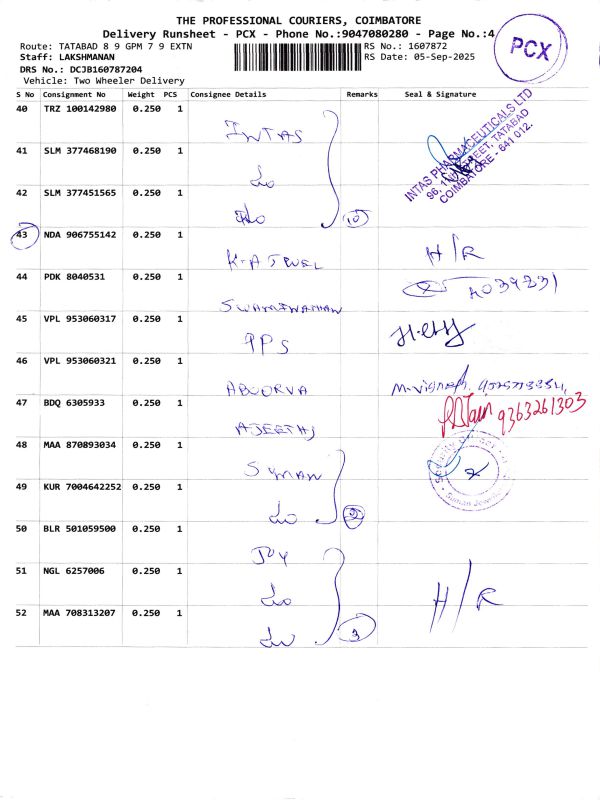 THE PROFESSIONAL COURIERS, COIMBATORE
Delivery Runsheet - PCX - Phone No.:9047080280 - Page No.:4
Route: TATABAD 8 9 GPM 7 9 EXTN
RS No.: 1607872
Staff: LAKSHMANAN
RS Date: 05-Sep-2025
DRS No.: DCJB160787204
Vehicle: Two Wheeler Delivery
PCX
S No Consignment No Weight PCS Consignee Details Remarks Seal & Signature
40 TRZ 100142980 0.250 1 INTAS
INTAS PHARMACEUTICALS LTD
COIMBATORE - 641 012.
41 SLM 377468190 0.250 1 Do
42 SLM 377451565 0.250 1 Do 10
43 NDA 906755142 0.250 1 K-A JEWEL H/R
44 PDK 8040531 0.250 1 SWAMINATHAN
45 VPL 953060317 0.250 1 PPS
46 VPL 953060321 0.250 1 ABOORVA
47 BDQ 6305933 0.250 1 AJEETHJ 9363261303
48 MAA 870893034 0.250 1 SUMAN
49 KUR 7004642252 0.250 1 Do
50 BLR 501059500 0.250 1 JOY
51 NGL 6257006 0.250 1 Do H/R
52 MAA 708313207 0.250 1 Do 3